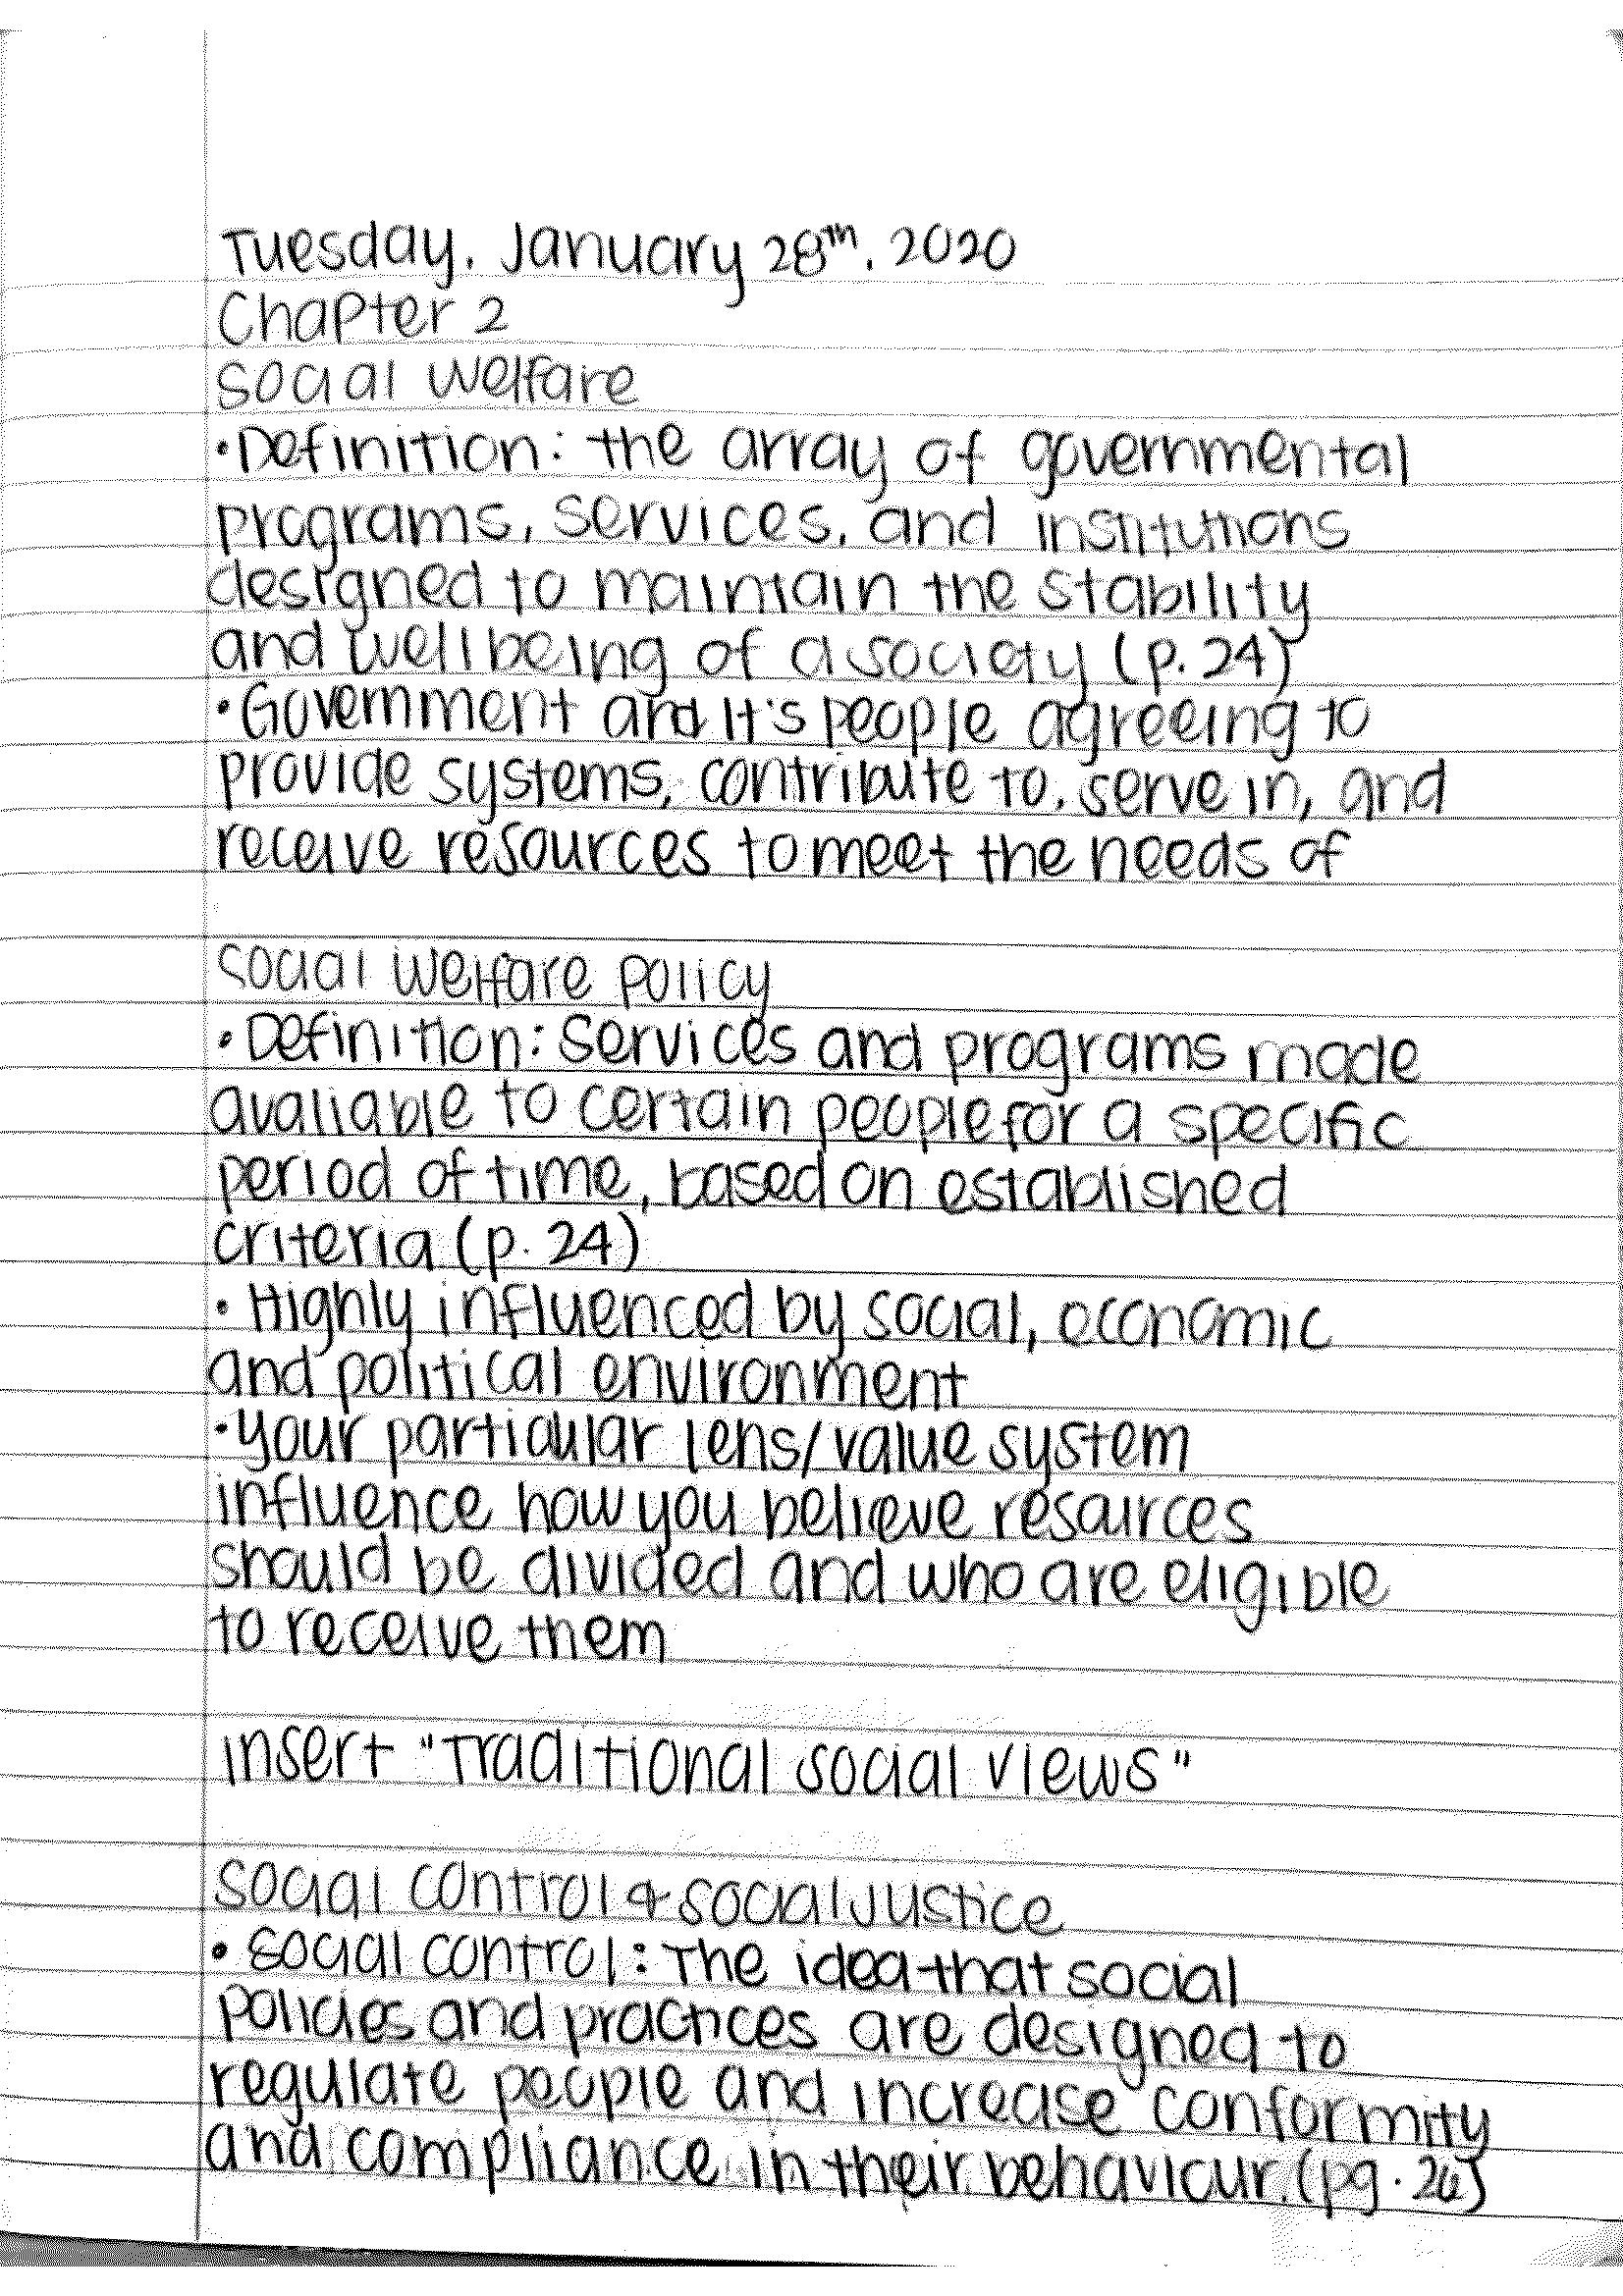 Tuesday, January 28th, 2020
Chapter 2
Social Welfare
•Definition: the array of governmental
programs, services, and institutions
designed to maintain the stability
and wellbeing of a society (p. 24)
•Government and it's people agreeing to
provide systems, contribute to, serve in, and
receive resources to meet the needs of
Social Welfare Policy
•Definition: Services and programs made
avaliable to certain people for a specific
period of time, based on established
criteria (p. 24)
• Highly influenced by social, economic
and political environment
•Your particular lens/value system
influence how you believe resources
should be divided and who are eligible
to receive them
insert "Traditional Social Views"
Social Control & Social Justice
• Social control: The idea that social
policies and practices are designed to
regulate people and increase conformity
and compliance in their behaviour. (pg. 26)